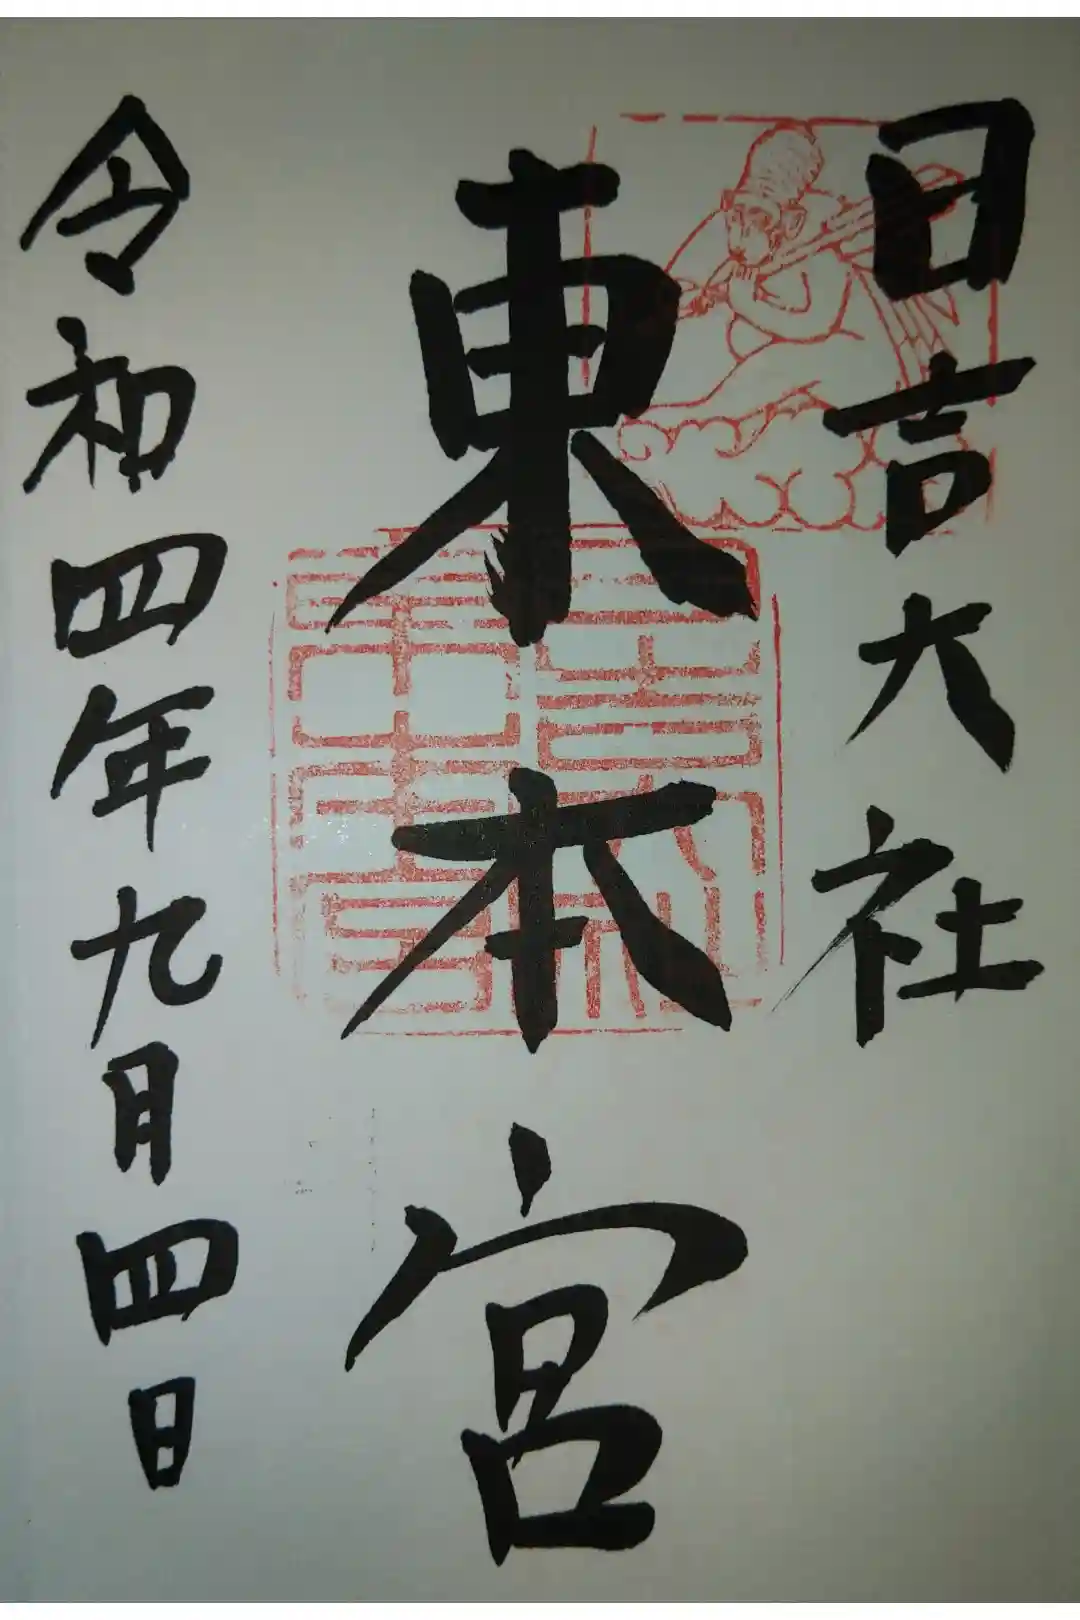 日吉大社
東本宮
令和四年九月四日